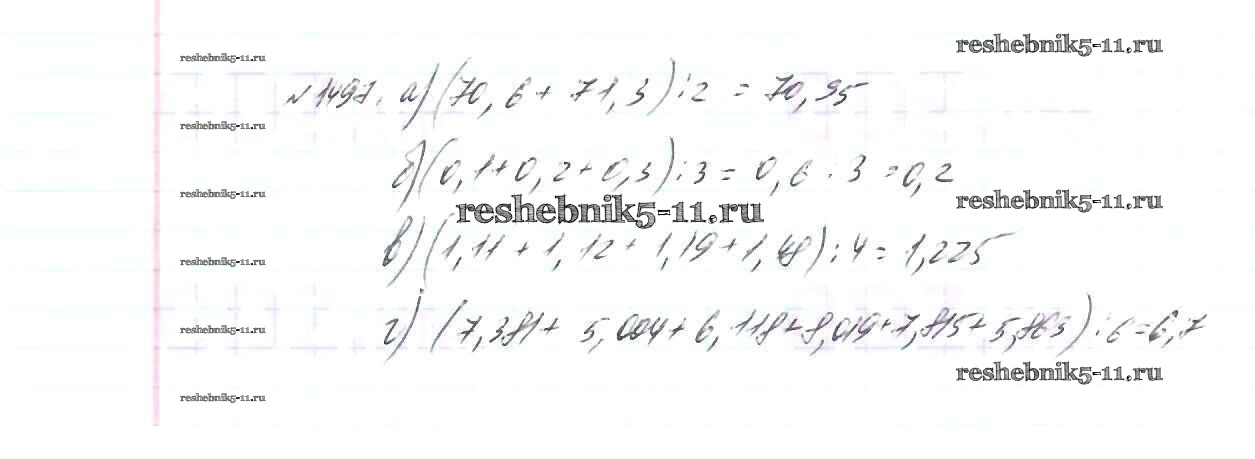 reshebnik5-11.ru
reshebnik5-11.ru
№1497. а) (70,6 + 71,3) : 2 = 70,95
reshebnik5-11.ru
б) (0,1 + 0,2 + 0,3) : 3 = 0,6 : 3 = 0,2
reshebnik5-11.ru
reshebnik5-11.ru
reshebnik5-11.ru
в) (1,11 + 1,12 + 1,19 + 1,48) : 4 = 1,225
reshebnik5-11.ru
г) (7,381 + 5,004 + 6,118 + 8,019 + 7,815 + 5,863) : 6 = 6,7
reshebnik5-11.ru
reshebnik5-11.ru
reshebnik5-11.ru